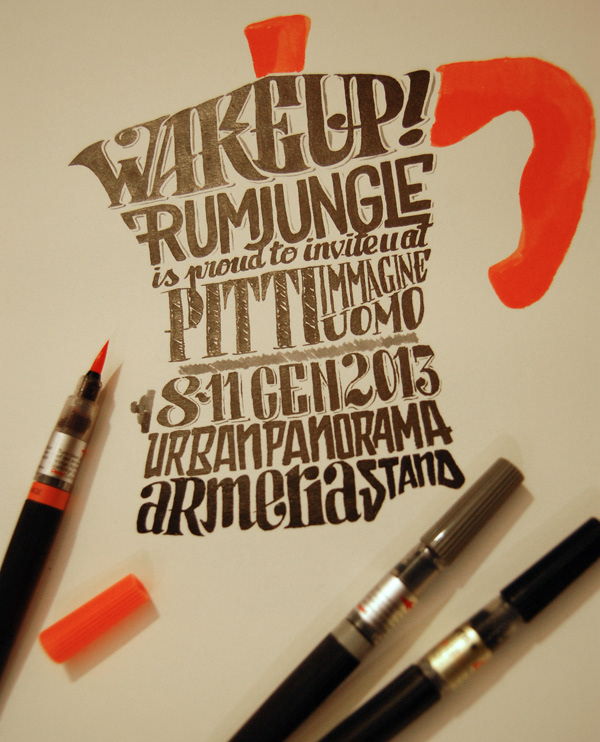 WAKEUP!
RUMJUNGLE
is proud to invite u at
PITTI IMMAGINE
UOMO
8-11 GEN 2013
URBANPANORAMA
armeria STAND